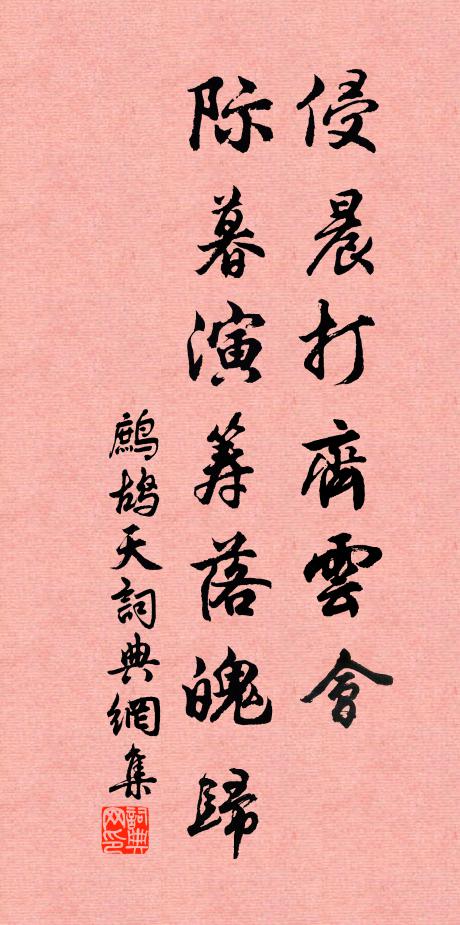 侵晨打齊雲會
际暮演筹落魄歸
鷓鴣天詞典網集
詞典网印